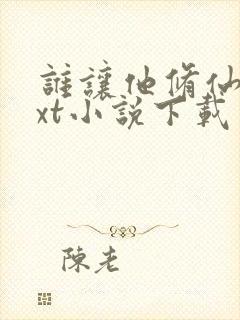 誰讓他脩仙
xt小説下載
陳老